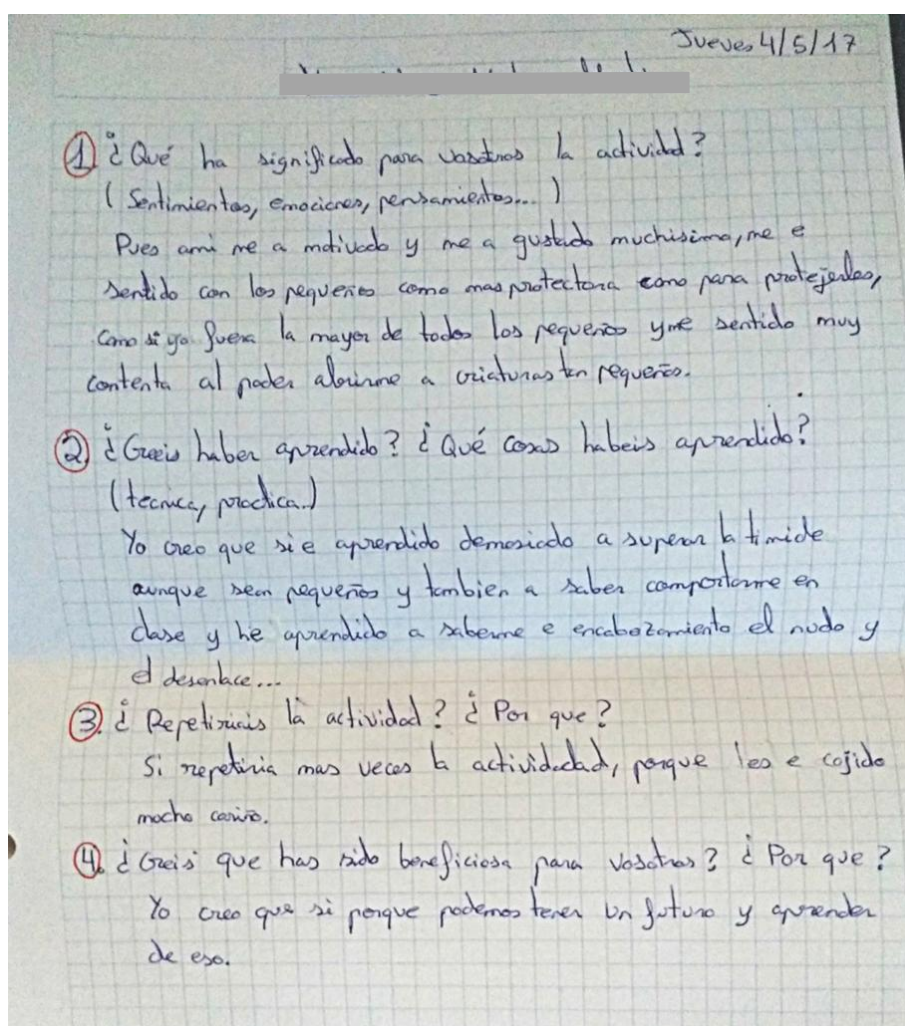 Jueves 4/5/17
① ¿Qué ha significado para vosotros la actividad?
(Sentimientos, emociones, pensamientos...)
Pues ami me a motivado y me a gustado muchisimo, me e
sentido con los pequeños como mas protectora como para protejerles,
como si yo fuera la mayor de todos los pequeños y me sentido muy
contenta al poder abrirme a criaturas tan pequeños.
② ¿Creeis haber aprendido? ¿Qué cosas habeis aprendido?
(tecnica, practica..)
Yo creo que si e aprendido demasiado a superar la timide
aunque sean pequeños y tambien a saber comportarme en
clase y he aprendido a saberme e encabezamiento el nudo y
el desenlace...
③. ¿Repetiriais la actividad? ¿Por que?
Si repetiria mas veces la actividadad, porque les e cojido
mocho cariño.
④. ¿Creis que has sido beneficiosa para vosotros? ¿Por que?
Yo creo que si porque podemos tener un futuro y aprender
de eso.